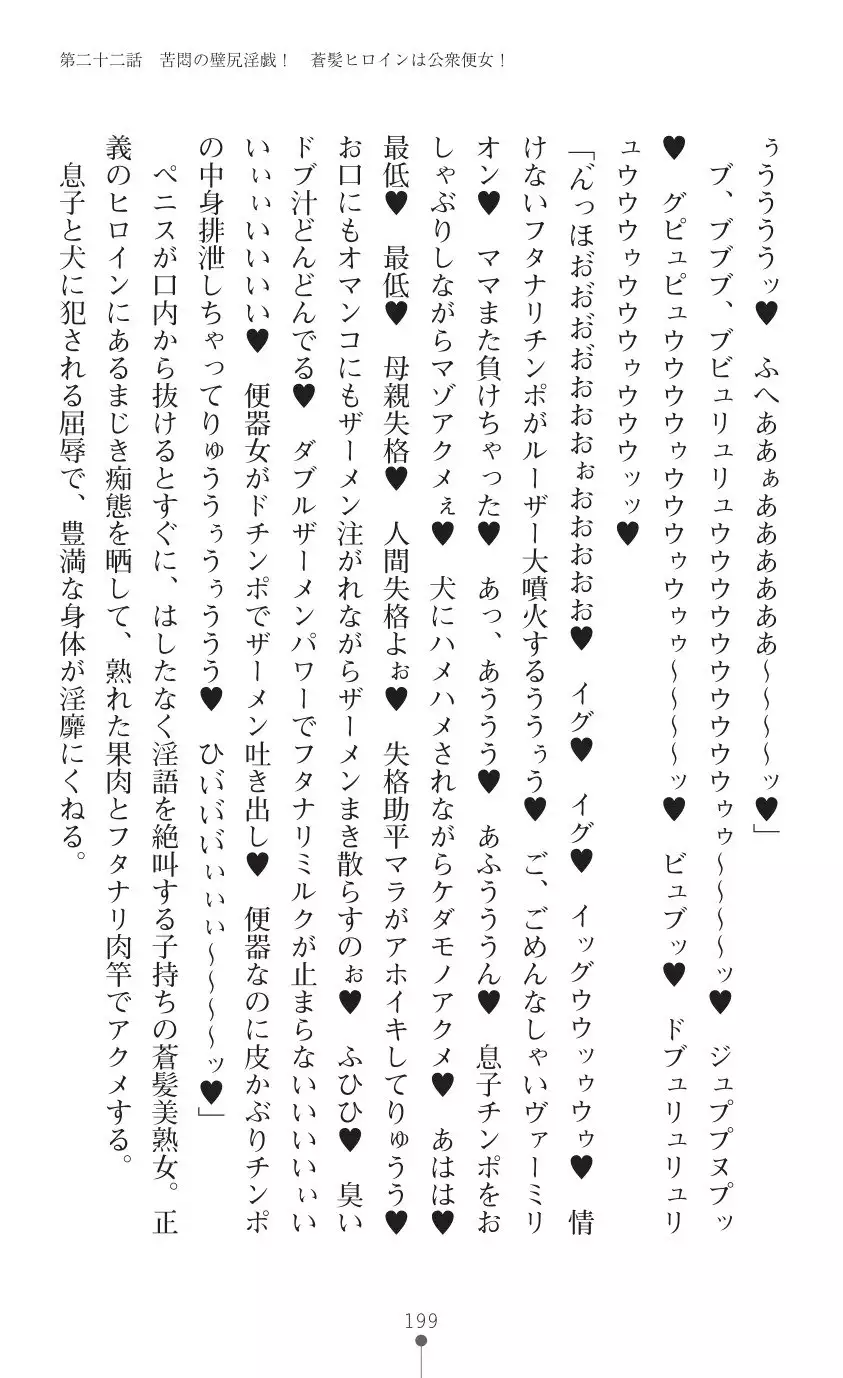 第二十二話　苦悶の壁尻淫戯！　蒼髪ヒロインは公衆便女！
ぅうううッ♥　ふへああぁああああああ～～～～ッ♥」
　ブ、ブブブ、ブビュリュリュウウウウウウウウウウウゥゥ～～～～ッ♥　ジュププヌプッ
♥　グピュピュウウウウゥウウウゥウゥゥ～～～～ッ♥　ビュブッ♥　ドブュリュリュリ
ュウウウゥウウウゥウウウッッ♥
「んっほお゙お゙お゙お゙おおおぉおおおおお♥　イグ♥　イグ♥　イッグウウッゥウゥ♥　情
けないフタナリチンポがルーザー大噴火するううぅう♥　ご、ごめんなしゃいヴァーミリ
オン♥　ママまた負けちゃった♥　あっ、あううう♥　あふうううん♥　息子チンポをお
しゃぶりしながらマゾアクメぇ♥　犬にハメハメされながらケダモノアクメ♥　あはは♥
最低♥　最低♥　母親失格♥　人間失格よぉ♥　失格助平マラがアホイキしてりゅうう♥
お口にもオマンコにもザーメン注がれながらザーメンまき散らすのぉ♥　ふひひ♥　臭い
ドブ汁どんどんでる♥　ダブルザーメンパワーでフタナリミルクが止まらないいいいぃい
いいぃいいいい♥　便器女がドチンポでザーメン吐き出し♥　便器なのに皮かぶりチンポ
の中身排泄しちゃってりゅううぅうぅううう♥　ひい゙い゙い゙ぃぃぃ～～～～ッ♥」
　ペニスが口内から抜けるとすぐに、はしたなく淫語を絶叫する子持ちの蒼髪美熟女。正
義のヒロインにあるまじき痴態を晒して、熟れた果肉とフタナリ肉竿でアクメする。
　息子と犬に犯される屈辱で、豊満な身体が淫靡にくねる。
199